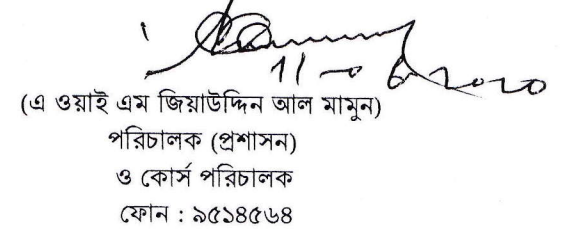 (এ ওয়াই এম জিয়াউদ্দিন আল মামুন)
পরিচালক (প্রশাসন)
ও কোর্স পরিচালক
ফোন : ৯৫১৪৫৬৪